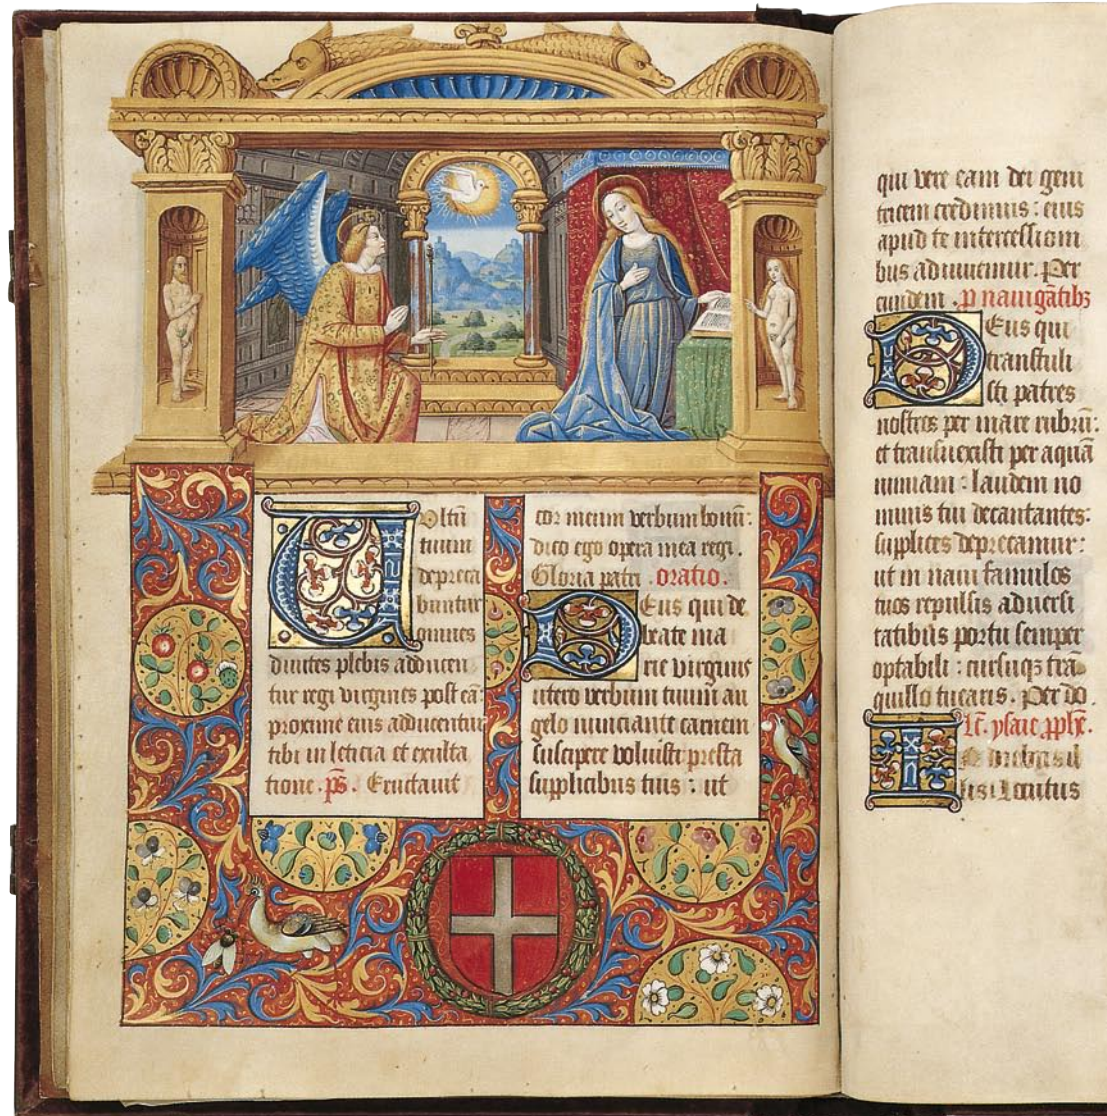 Uultū
tuum
depreca
buntur
omnes
diuites plebis adducen
tur regi virgines post eā:
proxime eius adducentur
tibi in leticia et exulta
tione . ps. Eructauit
cor meum verbum bonū:
dico ego opera mea regi.
Gloria patri . oratio.
Deus qui de
beate ma
rie virginis
utero verbum tuum an
gelo nunciante carnem
suscipere voluisti presta
supplicibus tuis : ut
qui vere eam dei geni
tricem credimus : eius
apud te intercessioni
bus adiuuemur. Per
eundem . p nauigātibꝫ
Deus qui
transtuli
sti patres
nostros per mare rubrū:
et transuexisti per aquā
nimiam : laudem no
minis tui decantantes:
supplices deprecamur:
ut in naui famulos
tuos repulsis aduersi
tatibus portu semper
optabili : cursuqꝫ trā
quillo tuearis. Per do.
Lc̄. ysaie pphē.
In diebus il
lis : Locutus